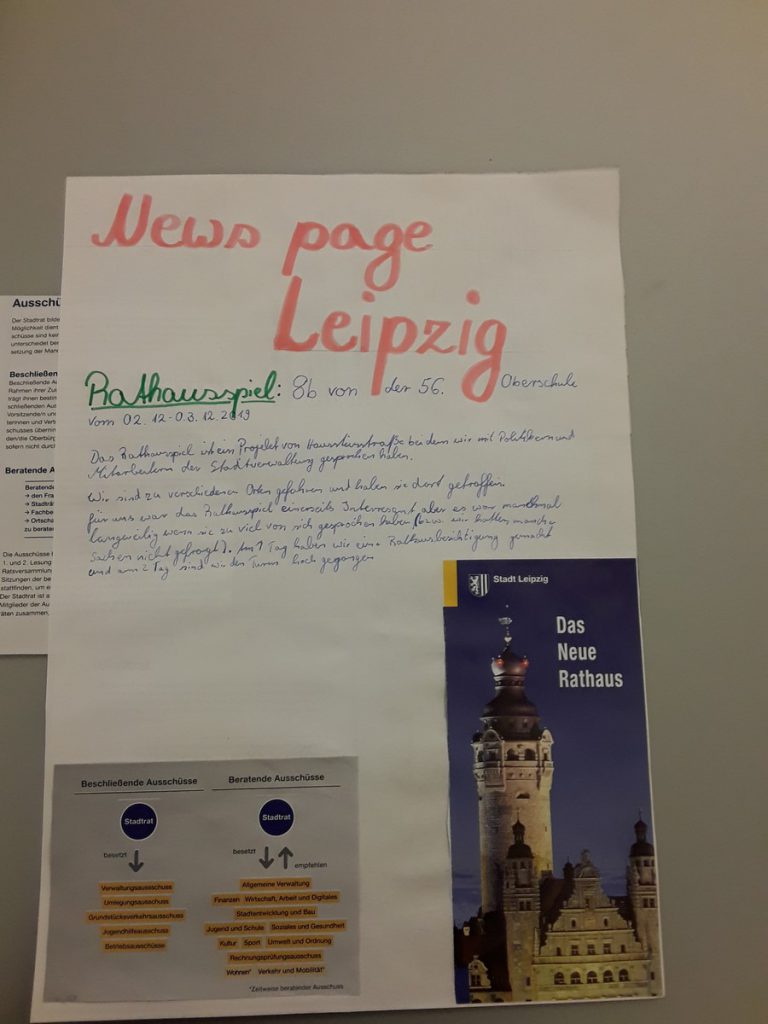 News page
Leipzig
Rathausspiel: 8b von der 56. Oberschule
vom 02.12-03.12.2019
Das Rathausspiel ist ein Projekt von bei dem wir mit Politikern und
Mitarbeitern der Stadtverwaltung gesprochen haben.
Wir sind zu verschiedenen Orten gefahren und haben sie dort getroffen.
für uns war das Rathausspiel einerseits Interresant aber es war manchmal
langweilig wenn sie zu viel von sich gesprochen haben (bzw. wir hatten manche
Sachen nicht gefragt). Am 1 Tag haben wir eine Rathausbesichtigung gemacht
und am 2 Tag sind wir den Turm hoch gegangen
Stadt Leipzig
Das
Neue
Rathaus
Beschließende Ausschüsse
Stadtrat
besetzt
Verwaltungsausschuss
Umlegungsausschuss
Grundstücksverkehrsausschuss
Jugendhilfeausschuss
Betriebsausschüsse
Beratende Ausschüsse
Stadtrat
besetzt
empfehlen
Allgemeine Verwaltung
Finanzen Wirtschaft, Arbeit und Digitales
Stadtentwicklung und Bau
Jugend und Schule Soziales und Gesundheit
Kultur Sport Umwelt und Ordnung
Rechnungsprüfungsausschuss
Wohnen* Verkehr und Mobilität*
*Zeitweise beratender Ausschuss
Ausschü
Der Stadtrat bilde
Möglichkeit dient
schüsse sind kein
unterscheidet be
setzung der Man
Beschließen
Beschließende Au
Rahmen ihrer Zus
trägt ihnen bestim
schließenden Aus
Vorsitzende/n un
terinnen und Vertr
schusses übernim
den/die Oberbür
sofern nicht durch
Beratende A
Beratende
→ den Fra
→ Stadträt
→ Fachbe
→ Ortscha
zu berater
Die Ausschüsse b
1. und 2. Lesung
Ratsversammlun
Sitzungen der be
stattfinden, um e
Der Stadtrat ist a
Mitglieder der Au
räten zusammen,